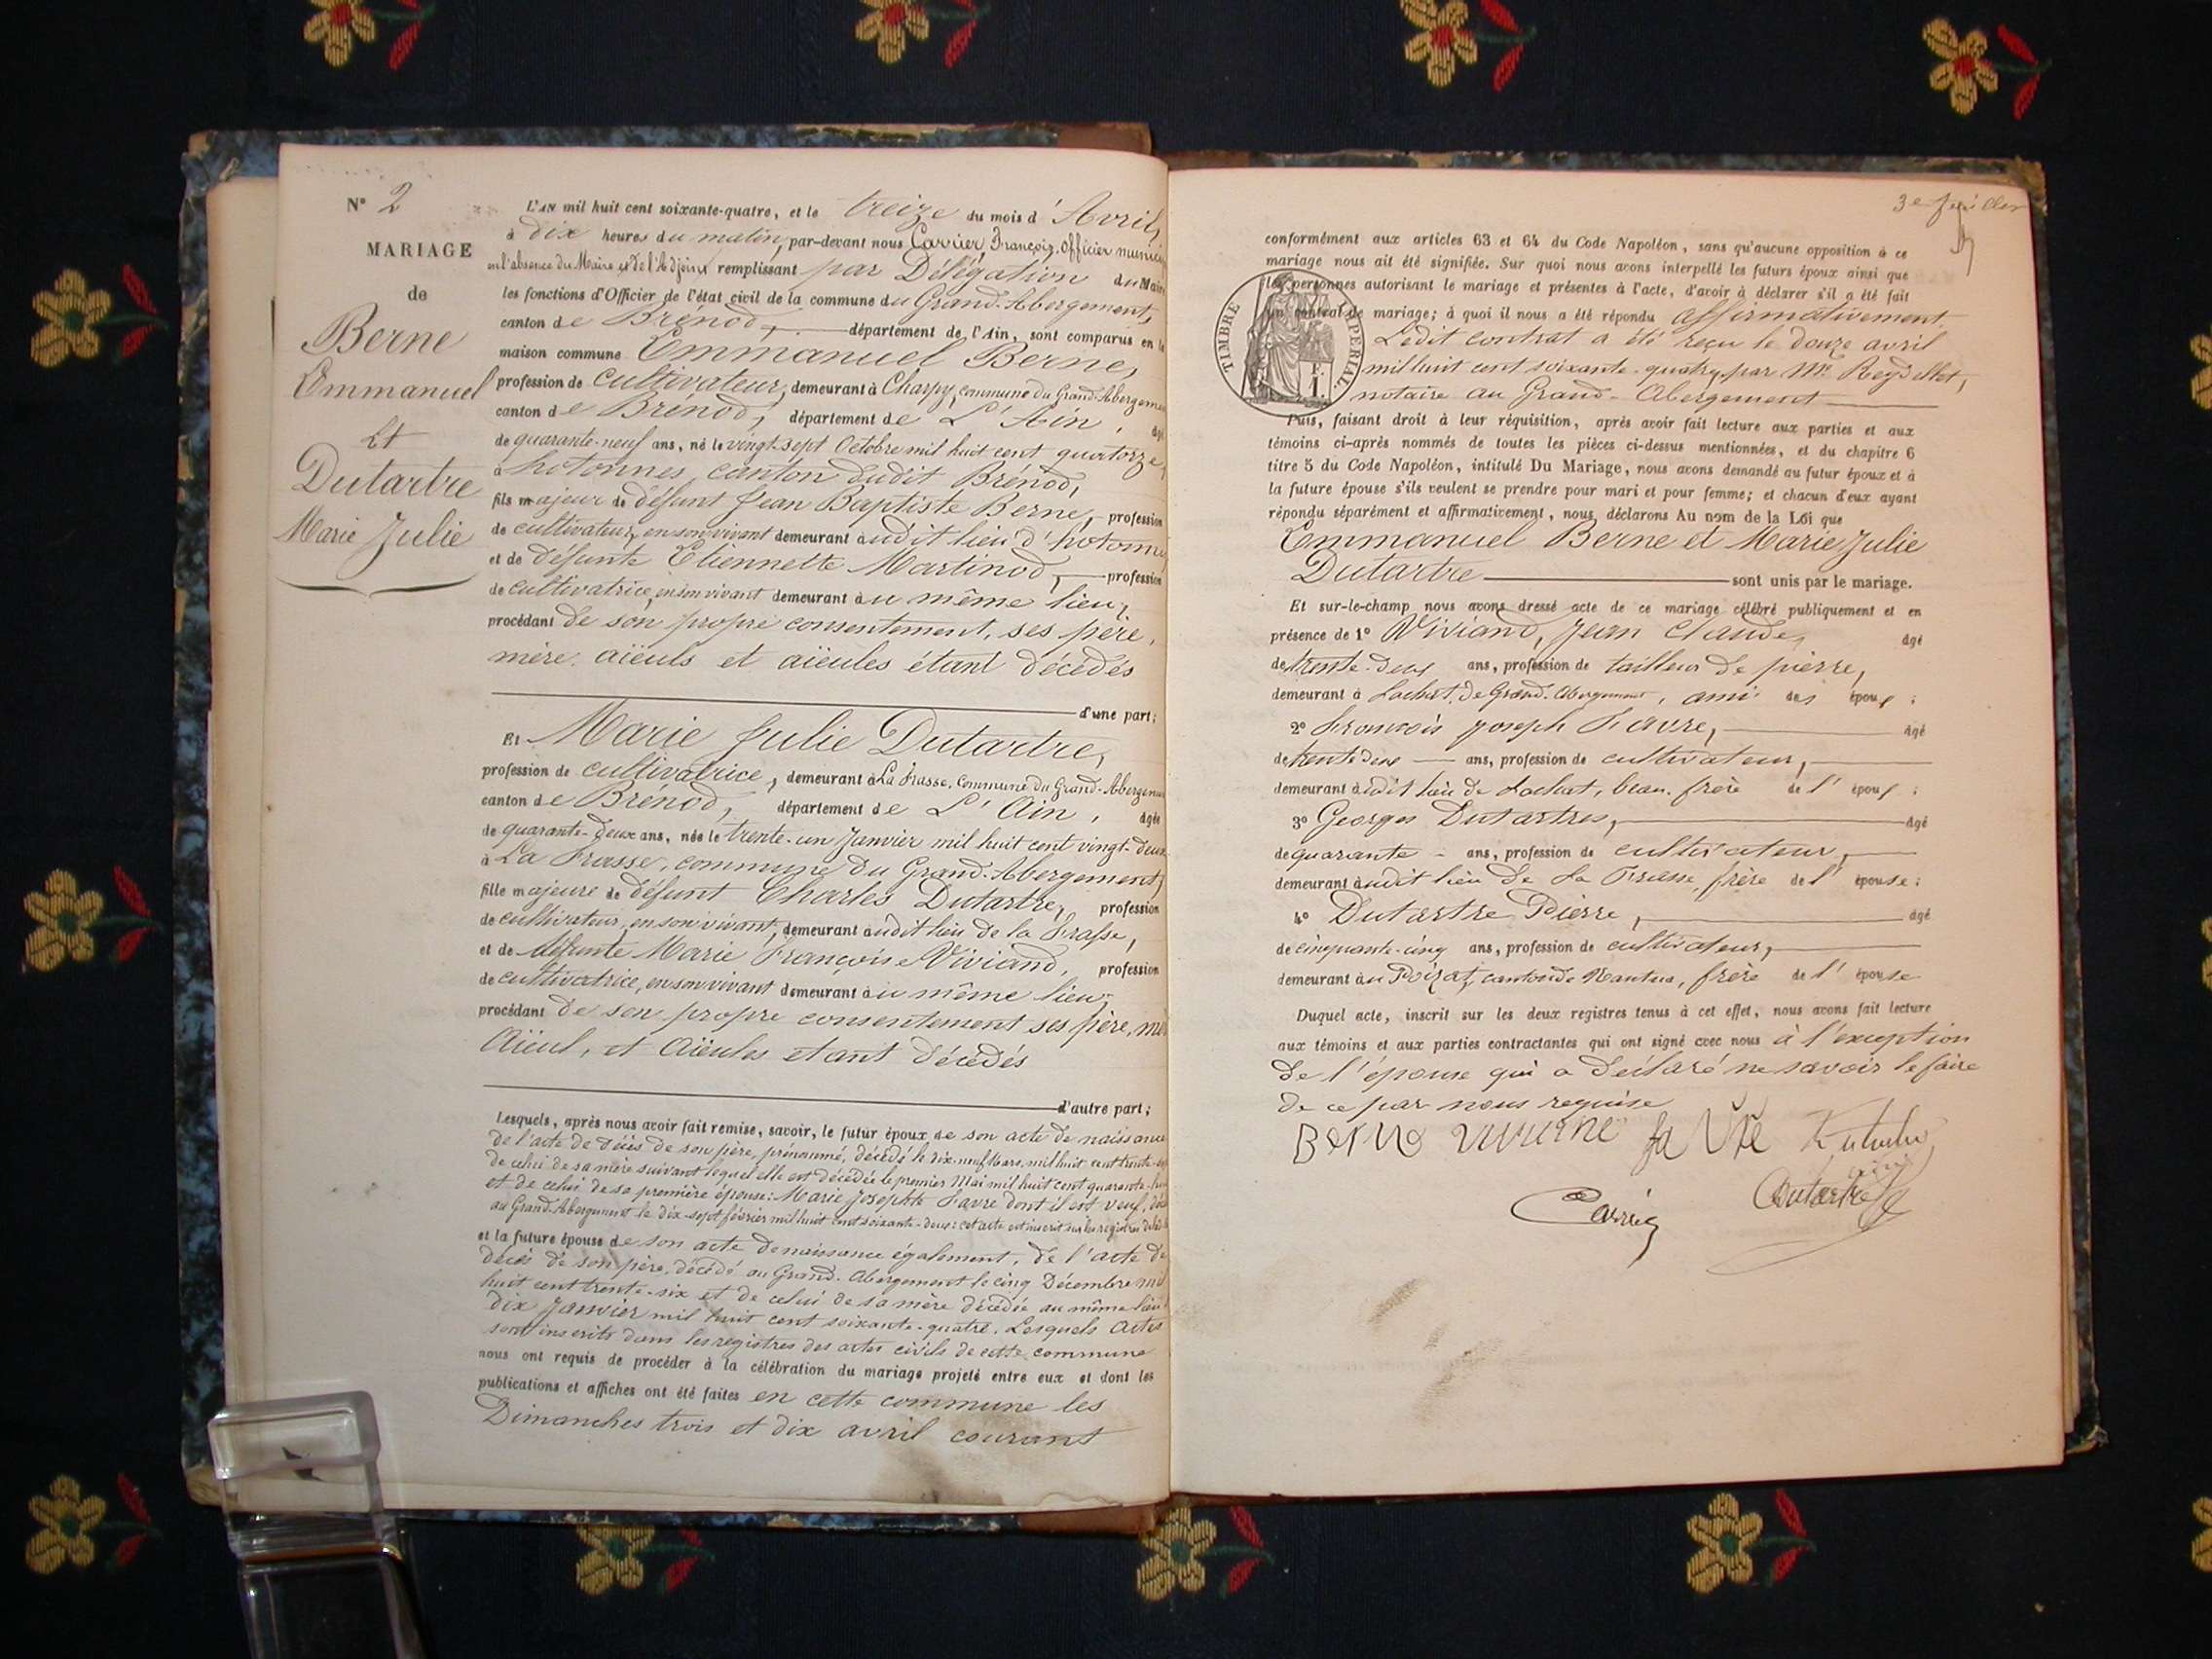 N° 2
MARIAGE
de
Berne
Emmanuel
Et
Dutartre
Marie Julie
L'AN mil huit cent soixante-quatre, et le treize du mois d'Avril,
à dix heures du matin, par-devant nous Carrier, François. Officier munici
en l'absence du Maire et de l'Adjoint remplissant par Délégation du Maire
les fonctions d'Officier de l'état civil de la commune du Grand-Abergement,
canton de Brénod, département de l'Ain, sont comparus en la
maison commune Emmanuel Berne,
profession de cultivateur, demeurant à Charpy, commune du Grand-Abergeme
canton de Brénod, département de L'Ain, âgé
de quarante-neuf ans, né le vingt-sept Octobre mil huit cent quatorze,
à hotonnes, canton dudit Brénod,
fils majeur de défunt Jean Baptiste Berne, profession
de cultivateur, en son vivant demeurant audit lieu d'hotonnes
et de défunte Etiennette Martinod, profession
de cultivatrice, en son vivant demeurant au même lieu,
procédant de son propre consentement, ses père,
mère, aïeuls et aïeules étant décédés
d'une part;
Et Marie Julie Dutartre,
profession de cultivatrice, demeurant à La Frasse, Commune du Grand-Abergeme
canton de Brénod, département de L'Ain, âgée
de quarante-deux ans, née le trente-un Janvier mil huit cent vingt-deux
à La Frasse, commune du Grand-Abergement,
fille majeure de défunt Charles Dutartre, profession
de cultivateur, en son vivant, demeurant audit lieu de la Frasse,
et de défunte Marie Françoise Viviand, profession
de cultivatrice, en son vivant demeurant au même lieu,
procédant de son propre consentement ses père, mère
Aïeul, et Aïeules etant décédés
d'autre part;
Lesquels, après nous avoir fait remise, savoir, le futur époux de son acte de naissance
de l'acte de décès de son père, prénommé, décédé le dix-neuf Mars, mil huit cent trente
de celui de sa mère suivant lequel elle est décédée le premier Mai mil huit cent quarante
et de celui de sa première épouse: Marie Josephte Favre dont il est veuf,
au Grand-Abergement le dix-sept février mil huit cent soixante-deux: cet acte est inscrit sur les registres
et la future épouse de son acte de naissance également, de l'acte de
décès de son père, décédé au Grand-Abergement le cinq Décembre mil
huit cent trente-six et de celui de sa mère décédée au même lieu
dix Janvier mil huit cent soixante-quatre. Lesquels actes
sont inscrits dans les registres des actes civils de cette commune
nous ont requis de procéder à la célébration du mariage projeté entre eux et dont les
publications et affiches ont été faites en cette commune les
Dimanches trois et dix avril courant
3e feuillet
conformément aux articles 63 et 64 du Code Napoléon, sans qu'aucune opposition à ce
mariage nous ait été signifiée. Sur quoi nous avons interpellé les futurs époux ainsi que
les personnes autorisant le mariage et présentes à l'acte, d'avoir à déclarer s'il a été fait
un contrat de mariage; à quoi il nous a été répondu affirmativement.
TIMBRE IMPÉRIAL
F. 1.
Ledit contrat a été reçu le douze avril
mil huit cent soixante-quatre, par Me Reydellet,
notaire au Grand-Abergement
Puis, faisant droit à leur réquisition, après avoir fait lecture aux parties et aux
témoins ci-après nommés de toutes les pièces ci-dessus mentionnées, et du chapitre 6
titre 5 du Code Napoléon, intitulé Du Mariage, nous avons demandé au futur époux et à
la future épouse s'ils veulent se prendre pour mari et pour femme; et chacun d'eux ayant
répondu séparément et affirmativement, nous déclarons Au nom de la Loi que
Emmanuel Berne et Marie Julie
Dutartre sont unis par le mariage.
Et sur-le-champ nous avons dressé acte de ce mariage célébré publiquement et en
présence de 1° Viviand, Jean Claude, âgé
de trente-deux ans, profession de tailleur de pierre,
demeurant à Lachat, de Grand-Abergement, ami des époux;
2° François Joseph Favre, âgé
de trente deux ans, profession de cultivateur,
demeurant audit lieu de Lachat, beau-frère de l'époux;
3° Georges Dutartres, âgé
de quarante ans, profession de cultivateur,
demeurant audit lieu de La Frasse frère de l'épouse;
4° Dutartre Pierre, âgé
de cinquante-cinq ans, profession de cultivateur,
demeurant au Poizat, canton de Nantua, frère de l'épouse
Duquel acte, inscrit sur les deux registres tenus à cet effet, nous avons fait lecture
aux témoins et aux parties contractantes qui ont signé avec nous à l'exception
de l'épouse qui a déclaré ne savoir le faire
de ce par nous requise
Berne favre
Carrier Dutartre